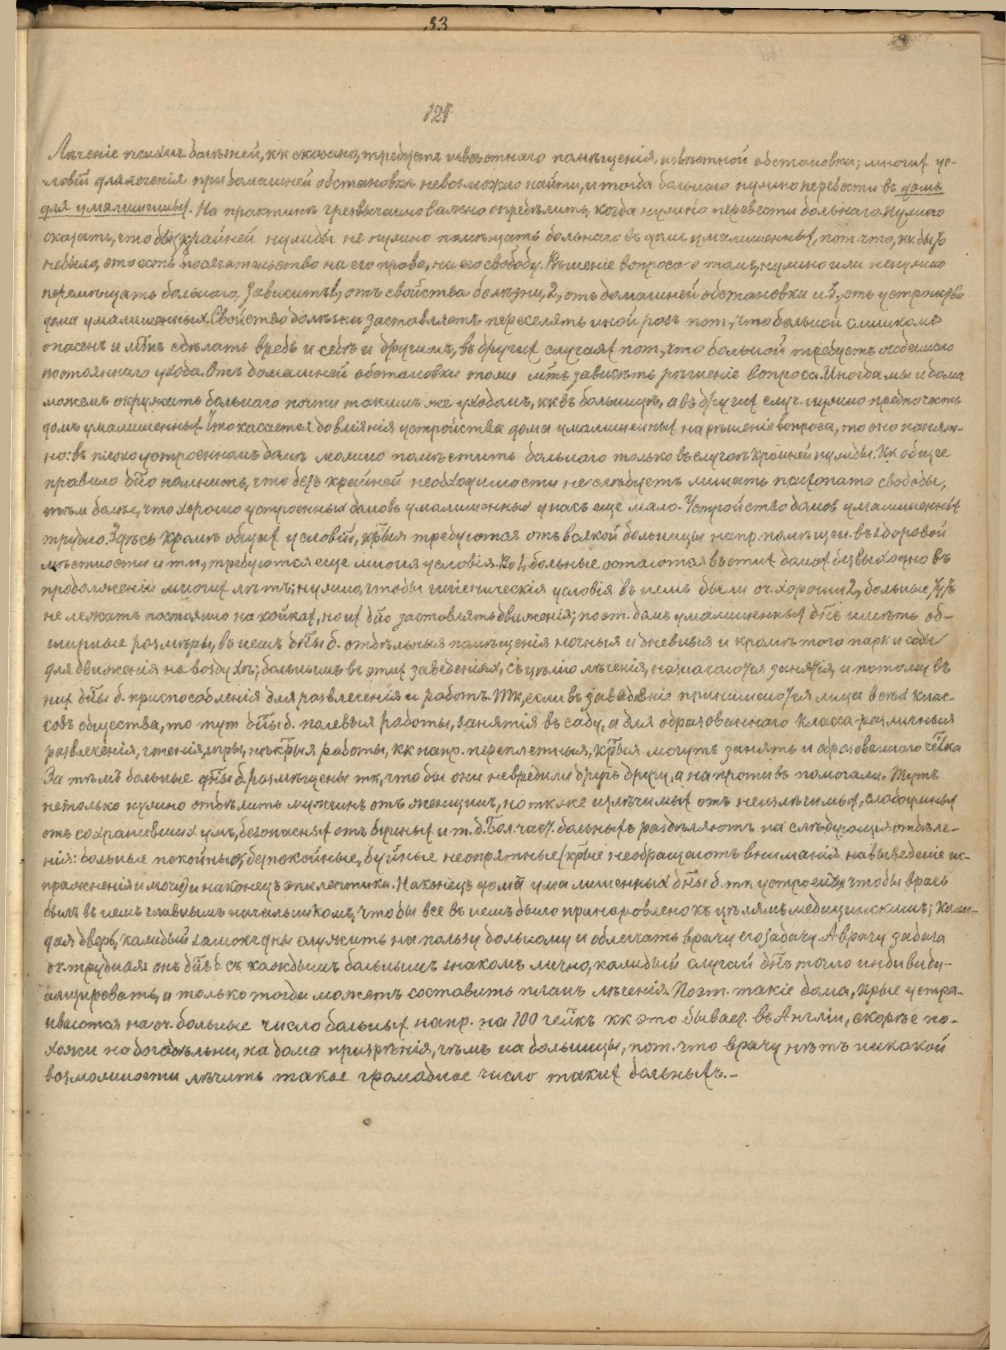 53
121
Лѣченіе психич. болѣзней, кк сказано, требуетъ извѣстнаго помѣщенія, извѣстной обстановки; многих ус-
ловій для лѣченія при домашней обстановкѣ невозможно найти, и тогда больнаго нужно перевести въ домъ
для умалишенных. На практикѣ чрезвычайно важно опредѣлить, когда нужно перевести больнаго. Нужно
сказать, что безъ крайней нужды не нужно помѣщать больнаго въ домъ умалишенных, пот. что, кк бы то
небыло, это есть посягательство на его права, на его свободу. Рѣшеніе вопроса о томъ, нужно или ненужно
перемѣщать больнаго, зависитъ 1, отъ свойства болѣзни, 2, отъ домашней обстановки и 3, отъ устройства
дома умалишенных. Свойство болѣзни заставляетъ переселять иной разъ пот., что больной слишкомъ
опасенъ и мжтъ сдѣлать вредъ и себѣ и другимъ, въ других случаях пот., что больной требуетъ особеннаго
постояннаго ухода. Отъ домашней обстановки тоже мжтъ зависѣть рѣшеніе вопроса. Иногда мы и дома
можемъ окружить больнаго почти такимъ же уходомъ, кк въ больницѣ, а въ других случ. нужно предпочесть
домъ умалишенных. Что касается до вліянія устройства дома умалишенных на рѣшеніе вопроса, то оно понят-
но: въ плохо устроенномъ домѣ можно помѣстить больнаго только въ случаѣ крайней нужды. Кк общее
правило дно помнить, что безъ крайней необходимости не слѣдуетъ лишать психопата свободы,
тѣмъ болѣе, что хорошо устроенных домовъ умалишенных у насъ еще мало. Устройство домов умалишенных
трудно. Здѣсь кромѣ общих условій, кртыя требуются отъ всякой больницы напр. помѣщен. въ здоровой
мѣстности и т. п., требуются еще многія условія. Во 1, больные остаются въ этих домах безвыходно въ
продолженіи многих лѣтъ; нужно, чтобы гигіеническія условія въ немъ были оч. хороши; 2, больные
не лежатъ постоянно на койках, но их дно заставлять движенія; поэт. домъ умалишенных днъ имѣть об-
ширные размѣры, въ немъ дны б. отдѣльныя помѣщенія ночныя и дневныя и кромѣ того парк и сады
для движенія на воздухѣ; больнымъ въ этих заведеніях, съ цѣлію лѣченія, назначаются занятія, и потому въ
них дны б. приспособленія для развлеченія и работъ. Тк, если въ заведеніе принимаются лица всѣх клас-
совъ общества, то тут дны б. полевыя работы, занятія въ саду, а для образованнаго класса различныя
развлеченія, чтенія, игры, нѣкртыя работы, кк напр. переплетныя, кртыя могутъ занять и образованнаго члвка
За тѣмъ больные дны б. размѣщены тк, что бы они невредили другъ другу, а на противъ помогали. Тутъ
нетолько нужно отдѣлить мужчинъ отъ женщинъ, но ткже излѣчимых отъ неизлѣчимых, слабоумных
отъ сохранивших умъ, безопасных отъ буйных и т. д. Бол. част. больных раздѣляютъ на слѣдующія отдѣле-
нія: больные покойные, безпокойные, буйные, неопрятные (кртые необращаютъ вниманія на выведеніе ис-
пражненія и мочи) и наконецъ эпилептики. Наконецъ дома умалишенных дны б. тк. устроены, чтобы врачъ
былъ въ немъ главнымъ начальникомъ, чтобы все въ немъ было принаровлено къ цѣлямъ медицинскимъ; каж-
дая дверь, каждый замокъ дны служить на пользу больному и облегчать врачу его задачу. А врачу задача
оч. трудная: онъ днъ б. съ каждымъ больнымъ знакомъ лично, каждый случай днъ точно индивиду-
ализировать, и только тогда можетъ составить планъ лѣченія. Поэт. такіе дома, кртые устра-
иваются на оч. большое число больных напр. на 700 члвкъ кк это бывает. въ Англіи, скорѣе по-
хожи на богадѣльни, на дома призрѣнія, чѣмъ на больницы, пот. что врачу нѣтъ никакой
возможности лѣчить такое громадное число таких больныхъ. –